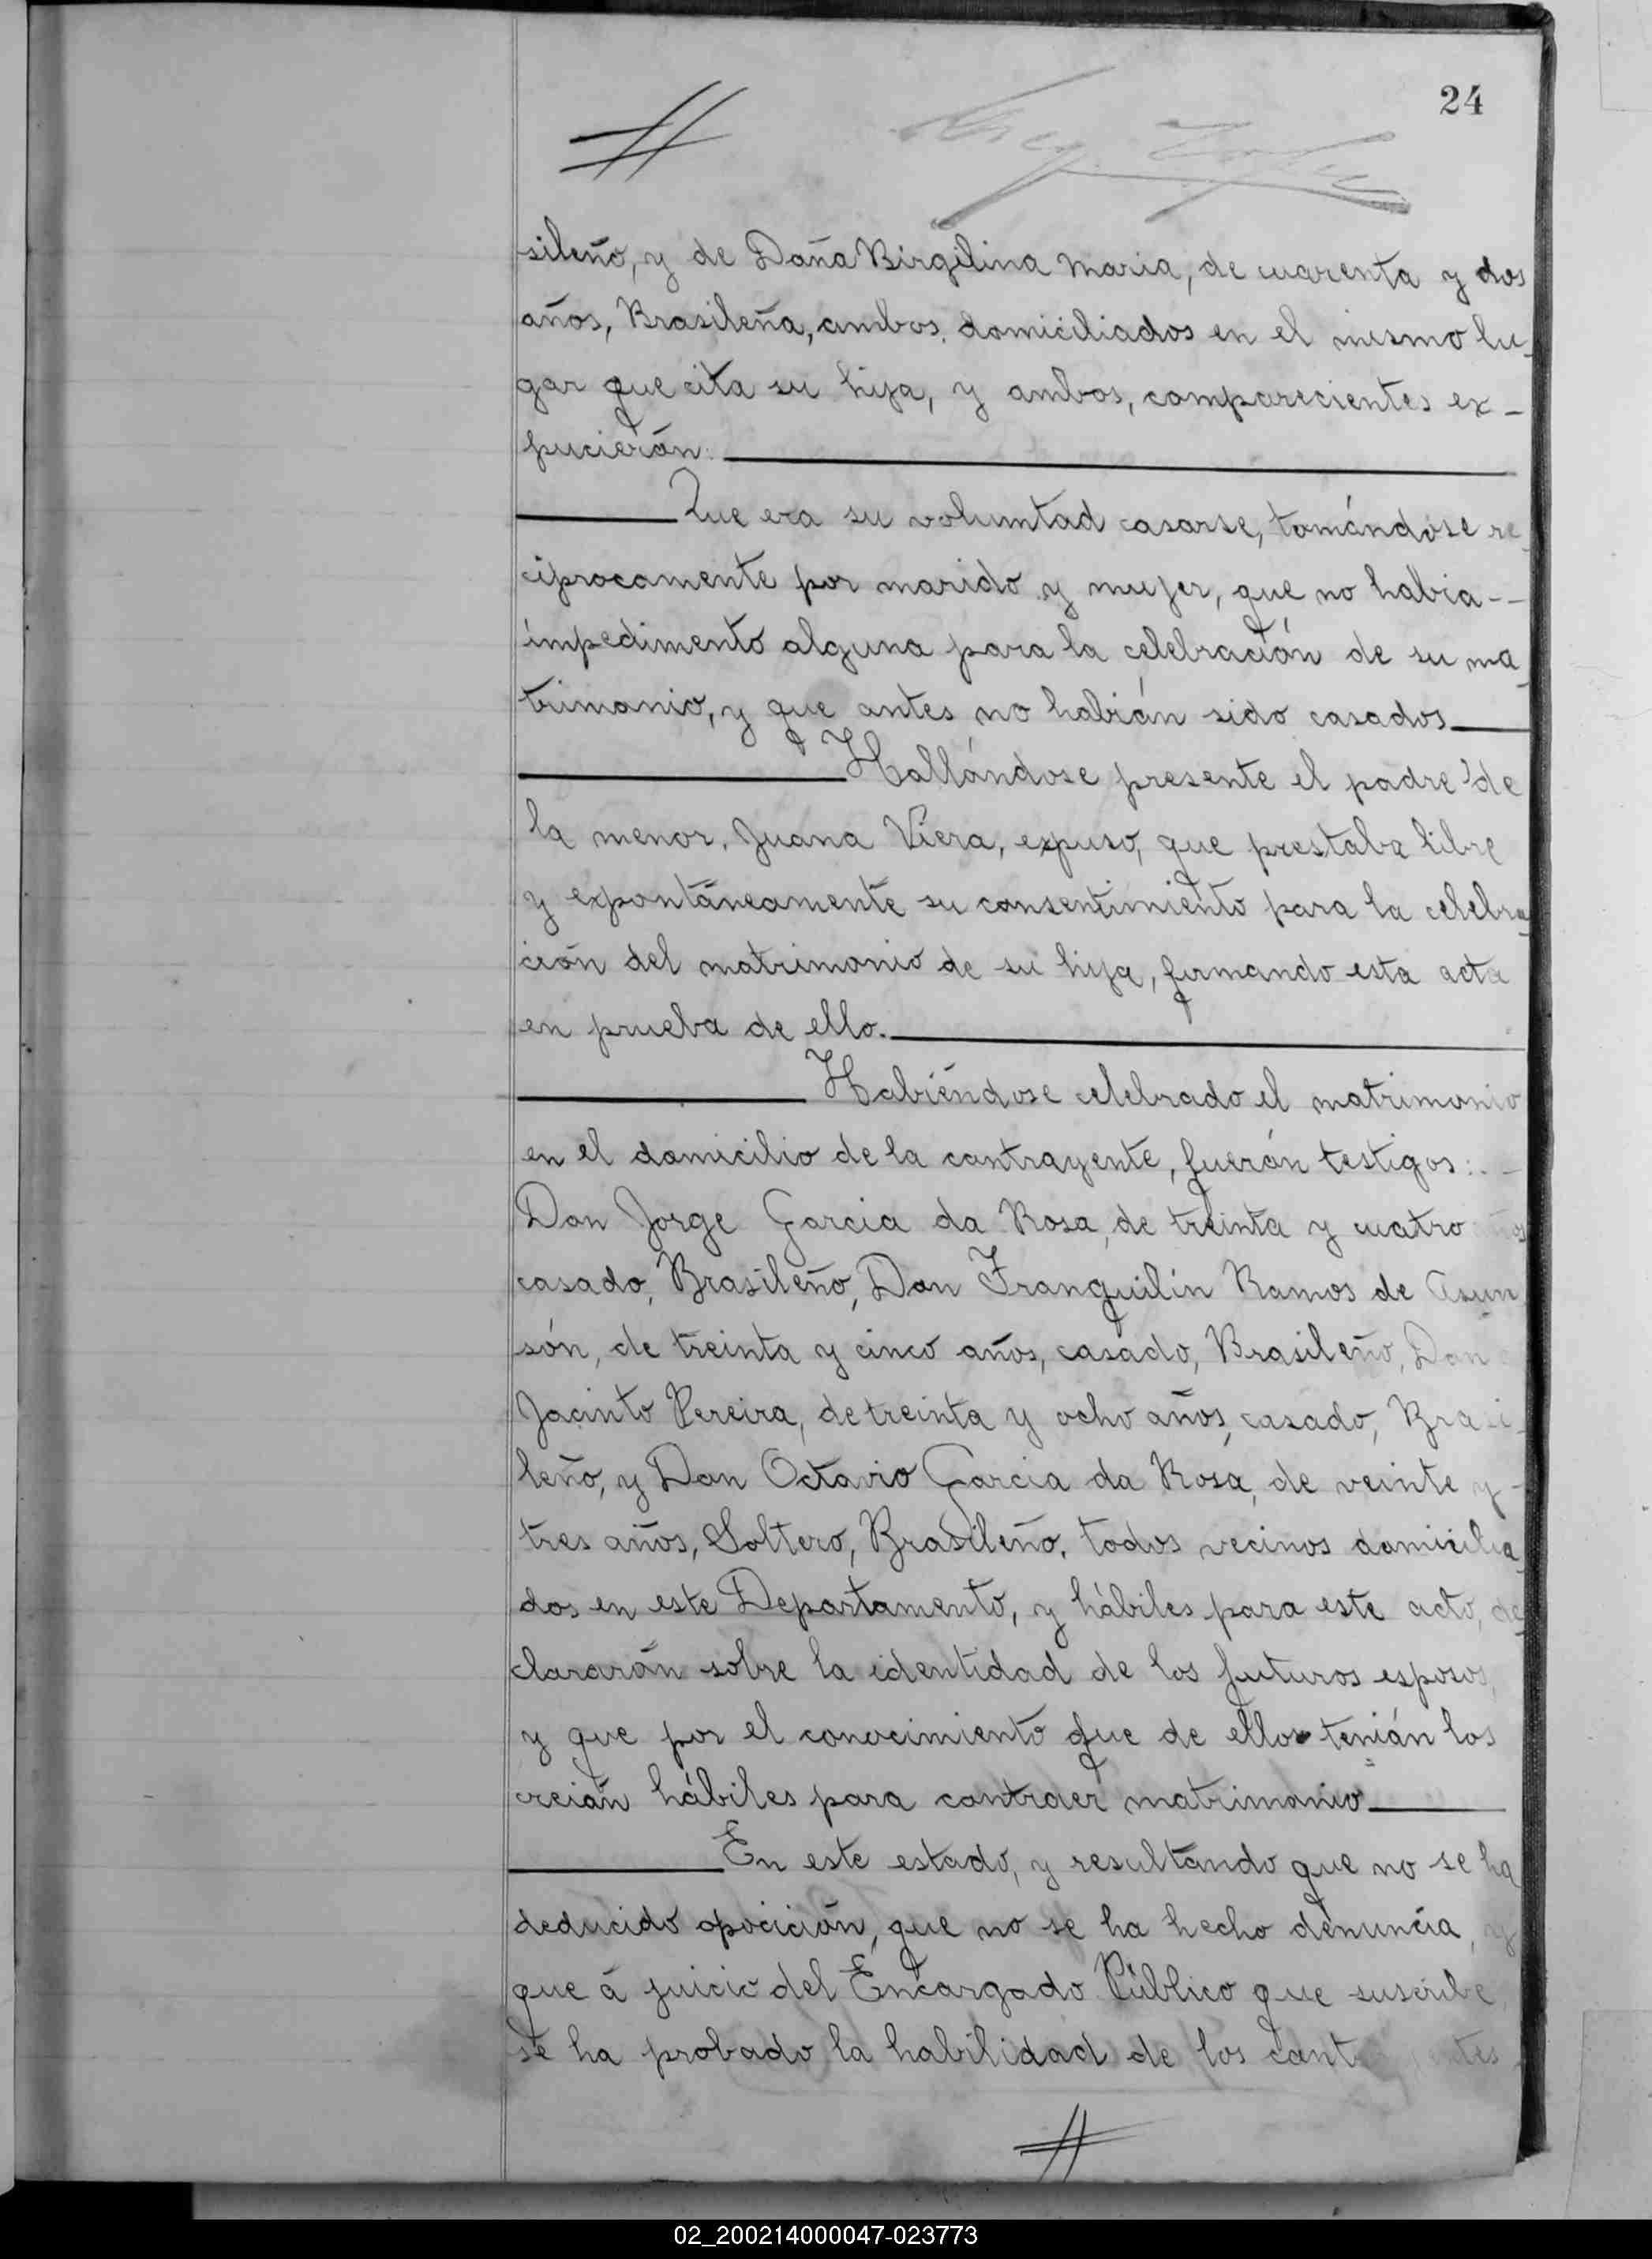 24
sileño, y de Doña Birgilina Maria, de cuarenta y dos
años, Brasileña, ambos domiciliados en el mismo lu-
gar que cita su hija, y ambos, comparecientes ex-
pucierón:
Que era su voluntad casarse, tomándose re-
ciprocamente por marido y mujer, que no habia--
impedimento alguna para la celebración de su ma-
trimonio, y que antes no habián sido casados
Hallándose presente el padre de
la menor, Juana Viera, expuso, que prestaba libre
y expontáneamente su consentimiento para la celebra-
ción del matrimonio de su hija, firmando esta acta
en prueba de ello.
Habiéndose celebrado el matrimonio
en el domicilio de la contrayente, fuerón testigos:
Don Jorge Garcia da Rosa, de treinta y cuatro años
casado, Brasileño, Don Franquilin Ramos de Asun-
són, de treinta y cinco años, casado, Brasileño, Don
Jacinto Pereira, de treinta y ocho años, casado, Brasi-
leño, y Don Octavio Garcia da Rosa, de veinte y-
tres años, Soltero, Brasileño, todos vecinos domicilia-
dos en este Departamento, y hábiles para este acto, de-
clararán sobre la identidad de los futuros esposos,
y que por el conocimiento que de ellos tenián los
creián hábiles para contraer matrimonio
En este estado, y resultando que no se ha
deducido opocición, que no se ha hecho denuncia, y
que á juicio del Encargado Público que suscribe,
se ha probado la habilidad de los contrayentes
02_200214000047-023773